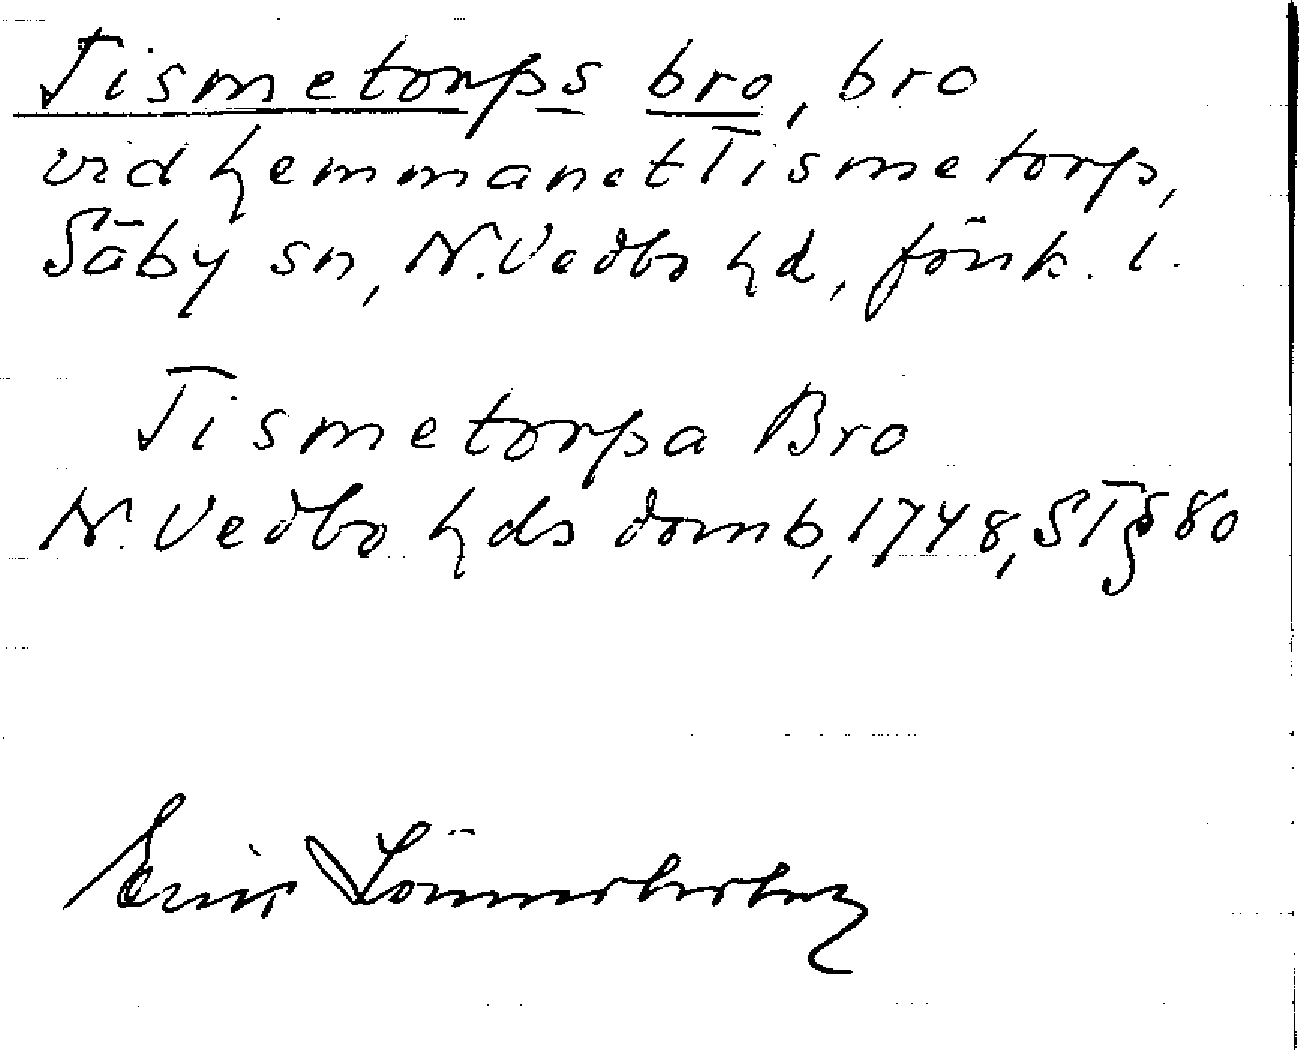 Tismetorps bro, bro
vid hemmanet Tismetorp,
Säby sn, N. Vedbo hd, Jönk. l.
Tismetorpa Bro
N. Vedbo hds domb, 1748, ST § 80